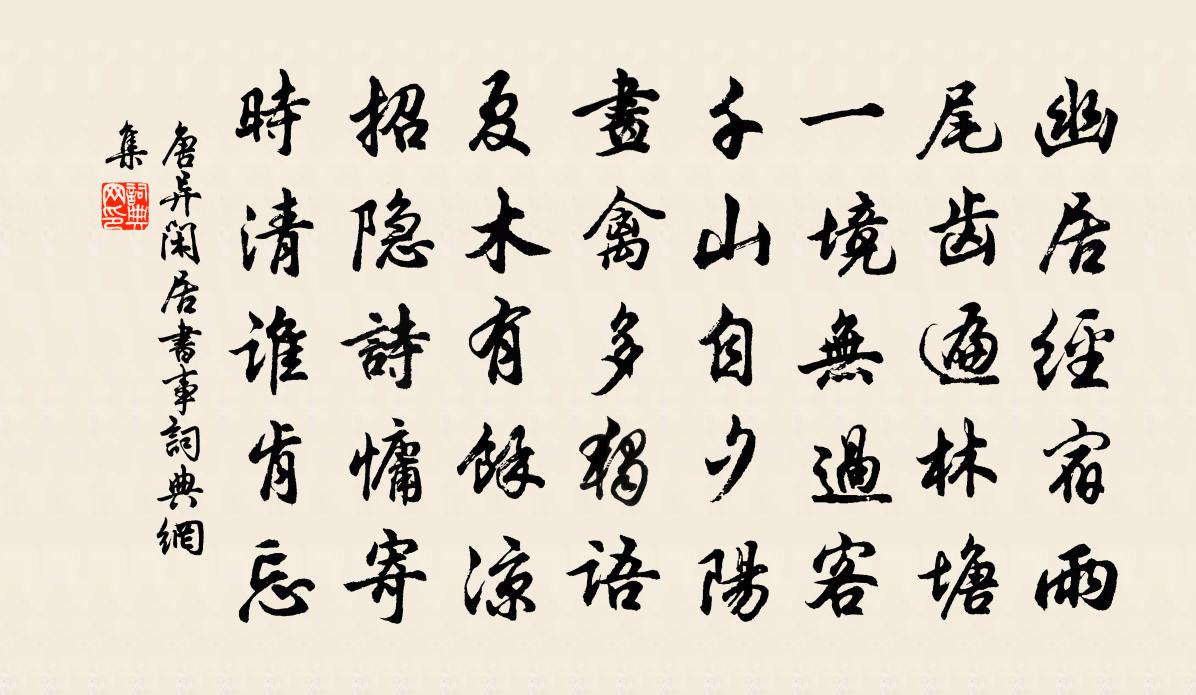 幽居經宿雨
尾齿遍林塘
一境無過客
千山自夕陽
晝禽多獨語
夏木有餘涼
招隐詩慵寄
時清誰肯忘
唐异閑居書事詞典網
集
詞典网印